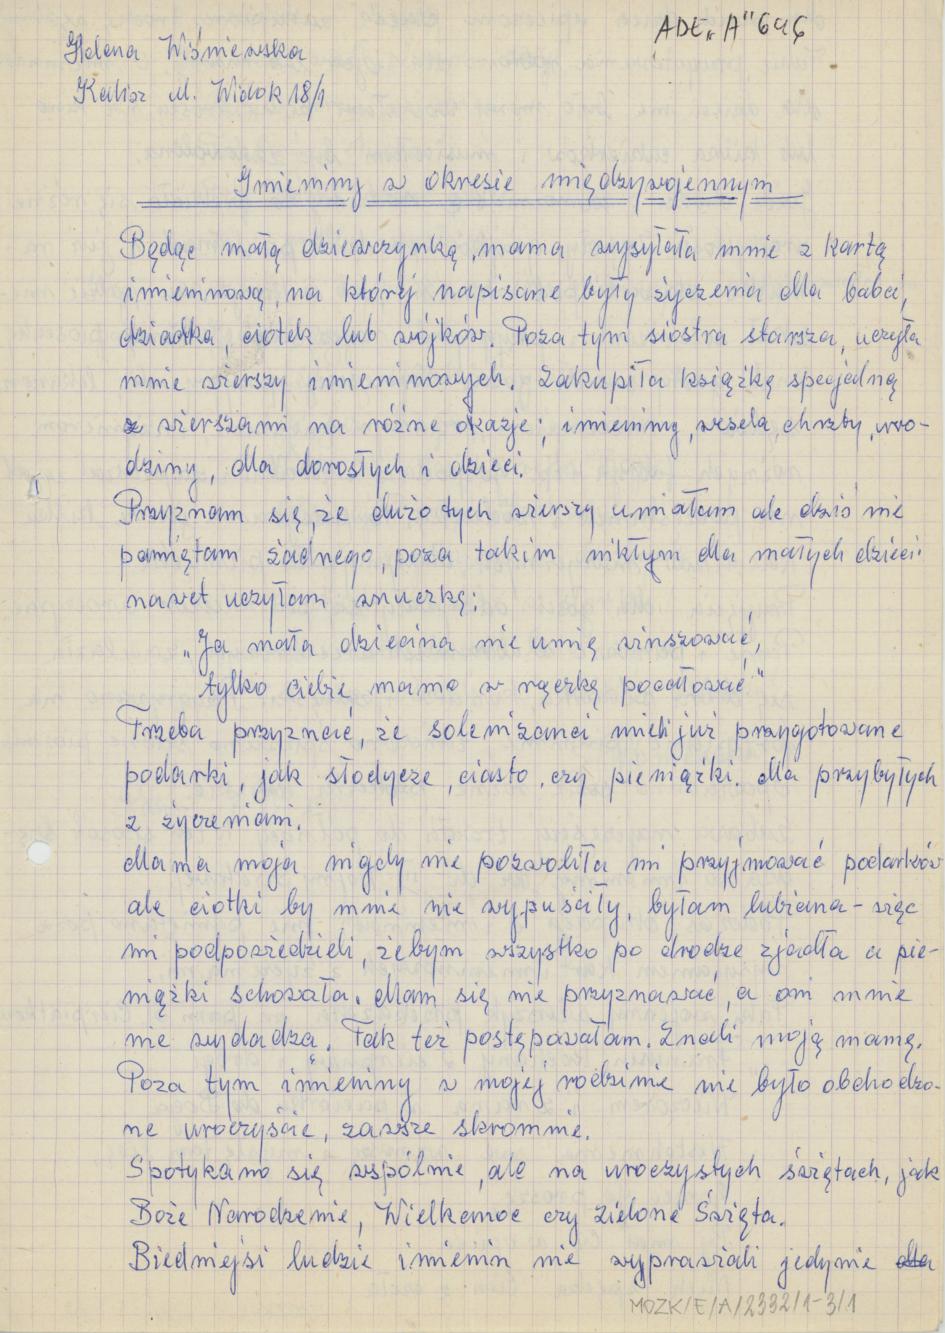 ADE„A" 646
Helena Wiśniewska
Kalisz ul. Widok 18/1
Imieniny w okresie międzywojennym
Będąc małą dziewczynką, mama wysyłała mnie z kartą
imieninową, na której napisane były życzenia dla babci,
dziadka, ciotek lub wójków. Poza tym siostra starsza, uczyła
mnie wierszy imieninowych. Zakupiła książkę specjalną
z wierszami na różne okazje; imieniny, wesela, chrzty, uro-
dziny, dla dorosłych i dzieci.
Przyznam się, że dużo tych wierszy umiałam ale dziś nie
pamiętam żadnego, poza takim nikłym dla małych dzieci
nawet uczyłam wnuczkę:
„Ja mała dziecina nie umię winszować,
tylko ciebie mamo w rączkę pocałować"
Trzeba przyznać, że solenizanci mieli już przygotowane
podarki, jak słodycze, ciasto, czy pieniążki. dla przybyłych
z życzeniami.
Mama moja nigdy nie pozwoliła mi przyjmować podarków
ale ciotki by mnie nie wypuściły, byłam lubiana - więc
mi podpowiedzieli, żebym wszystko po drodze zjadła a pie-
niążki schowała. Mam się nie przyznawać, a oni mnie
nie wydadzą. Tak też postępowałam. Znali moją mamę.
Poza tym imieniny w mojej rodzinie nie było obchodzo-
ne uroczyście, zawsze skromnie.
Spotykano się wspólnie, ale na uroczystych świętach, jak
Boże Narodzenie, Wielkanoc czy Zielone Święta.
Biedniejsi ludzie imienin nie wyprawiali jedynie dla
MOZK/E/A/2332/1-3/1